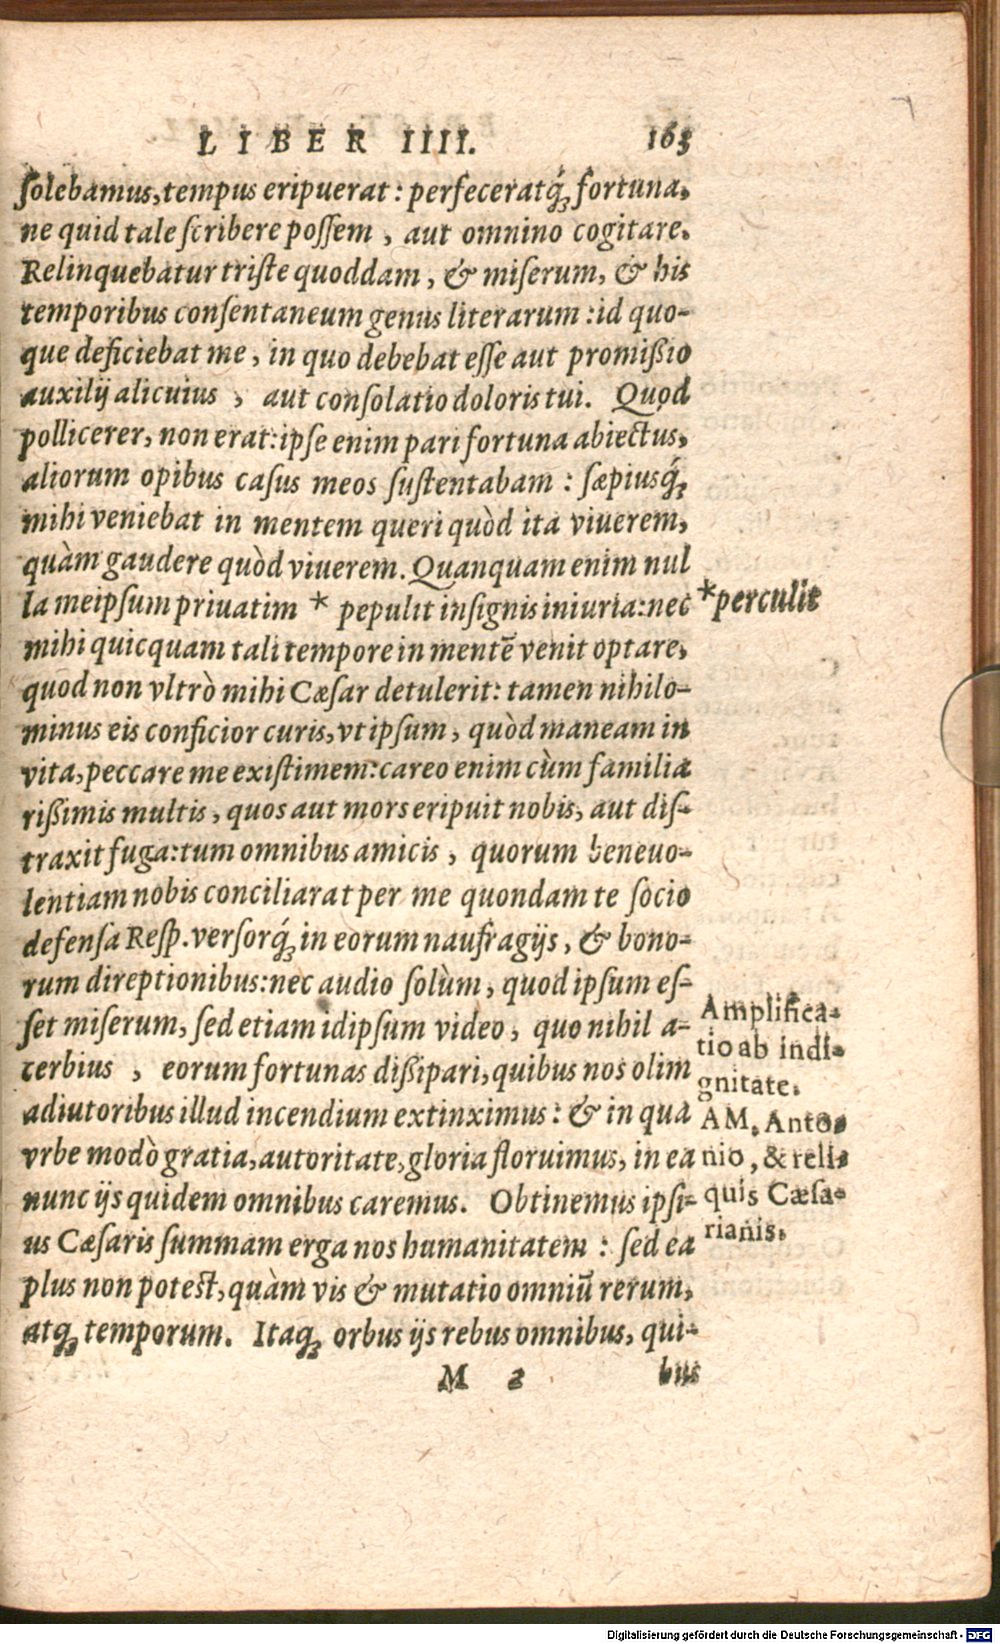 LIBER IIII. 163
ſolebamus, tempus eripuerat: perfeceratq́ꝫ fortuna,
ne quid tale ſcribere poſſem, aut omnino cogitare.
Relinquebatur triſte quoddam, & miſerum, & his
temporibus conſentaneum genus literarum: id quo-
que deficiebat me, in quo debebat eſſe aut promißio
auxilij alicuius, aut conſolatio doloris tui. Quod
pollicerer, non erat: ipſe enim pari fortuna abiectus,
aliorum opibus caſus meos ſuſtentabam: ſæpiusq́ꝫ
mihi veniebat in mentem queri quòd ita viuerem,
quàm gaudere quòd viuerem. Quanquam enim nul
la meipſum priuatim * pepulit inſignis iniuria: nec
*perculit
mihi quicquam tali tempore in mentē venit optare,
quod non vltrò mihi Cæſar detulerit: tamen nihilo-
minus eis conficior curis, vt ipſum, quòd maneam in
vita, peccare me exiſtimem: careo enim cùm familia
rißimis multis, quos aut mors eripuit nobis, aut diſ-
traxit fuga: tum omnibus amicis, quorum beneuo-
lentiam nobis conciliarat per me quondam te ſocio
defenſa Reſp. verſorq́ꝫ in eorum naufragijs, & bono-
rum direptionibus: nec audio ſolùm, quod ipſum eſ-
ſet miſerum, ſed etiam idipſum video, quo nihil a-
cerbius, eorum fortunas dißipari, quibus nos olim
adiutoribus illud incendium extinximus: & in qua
vrbe modò gratia, autoritate, gloria floruimus, in ea
nunc ijs quidem omnibus caremus. Obtinemus ipſi-
us Cæſaris ſummam erga nos humanitatem: ſed ea
plus non poteſt, quàm vis & mutatio omniū rerum,
atqꝫ temporum. Itaqꝫ orbus ijs rebus omnibus, qui-
Amplifica-
tio ab indi-
gnitate.
A M. Anto-
nio, & reli-
quis Cæſa-
rianis.
M 2 bus
Digitalisierung gefördert durch die Deutsche Forschungsgemeinschaft - DFG